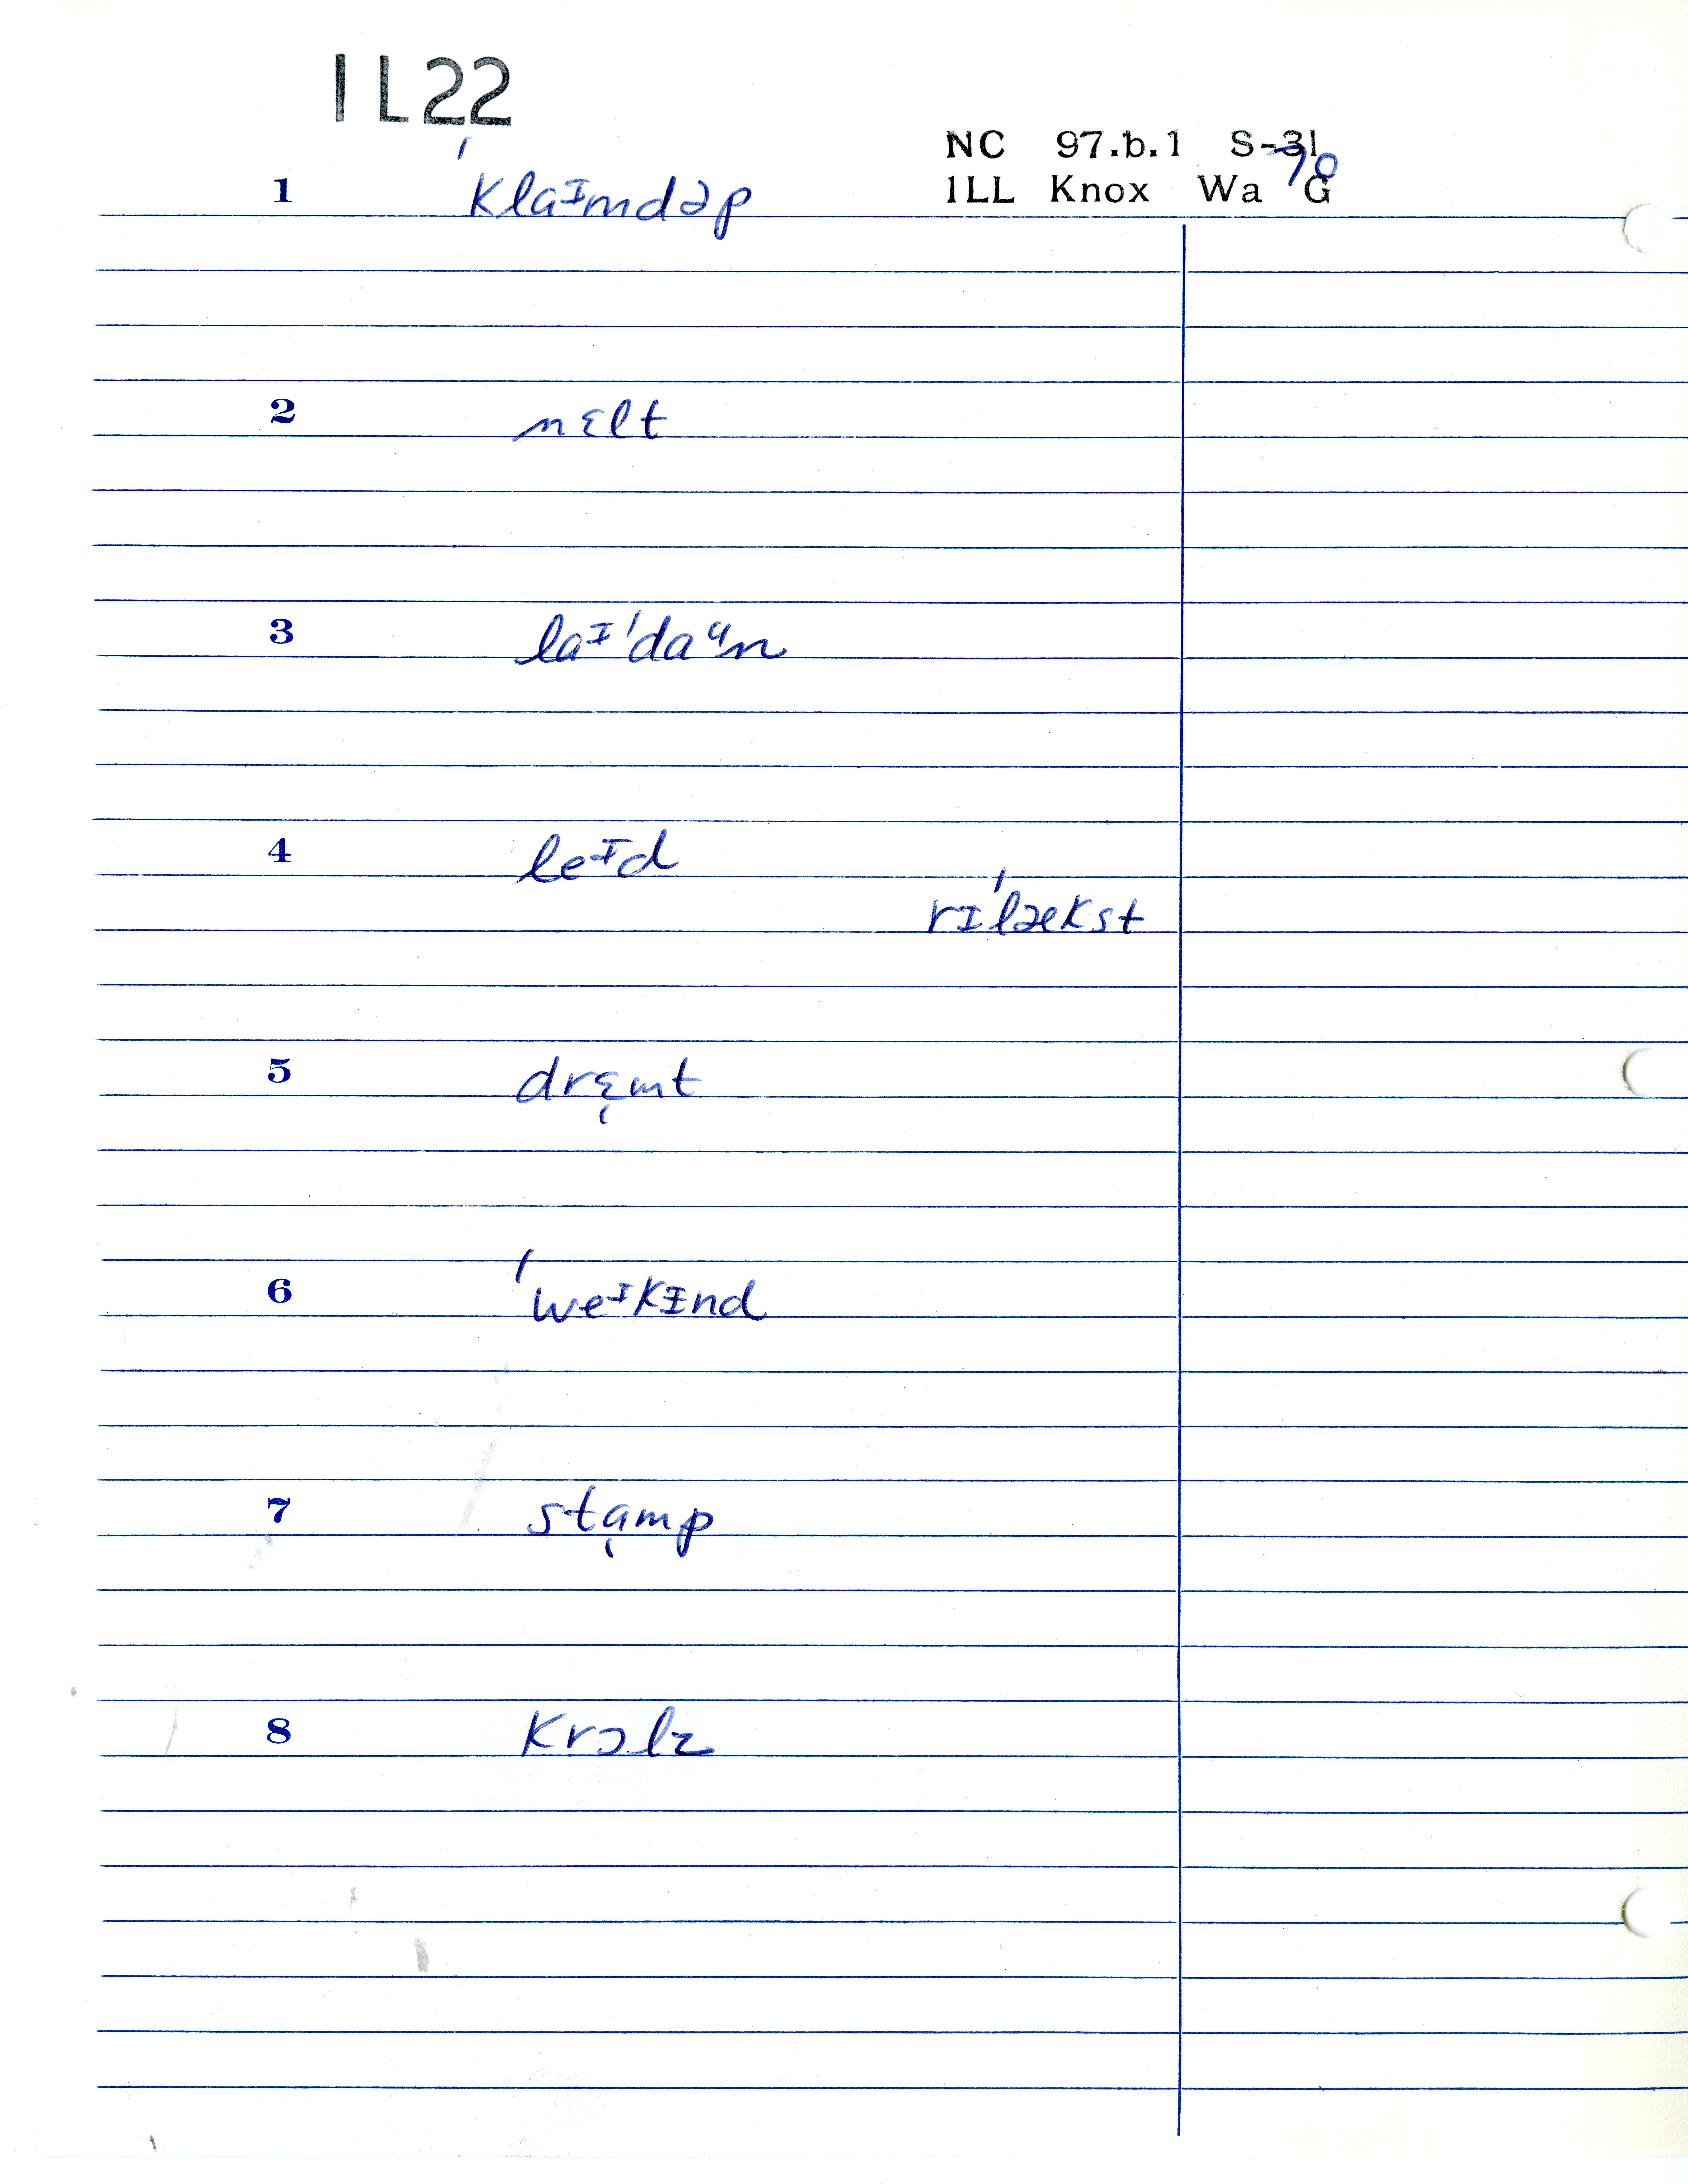 1L22
NC 97.b.1 S-31
70
1LL Knox Wa G
1 ˈklaᶦmdəp
2 nɛlt
3 laᶦˈdaᶶn
4 leᶦd
rɪˈlækst
5 drɛ̜mt
6 ˈweᶦkɪnd
7 sta̜mp
8 krɔlz